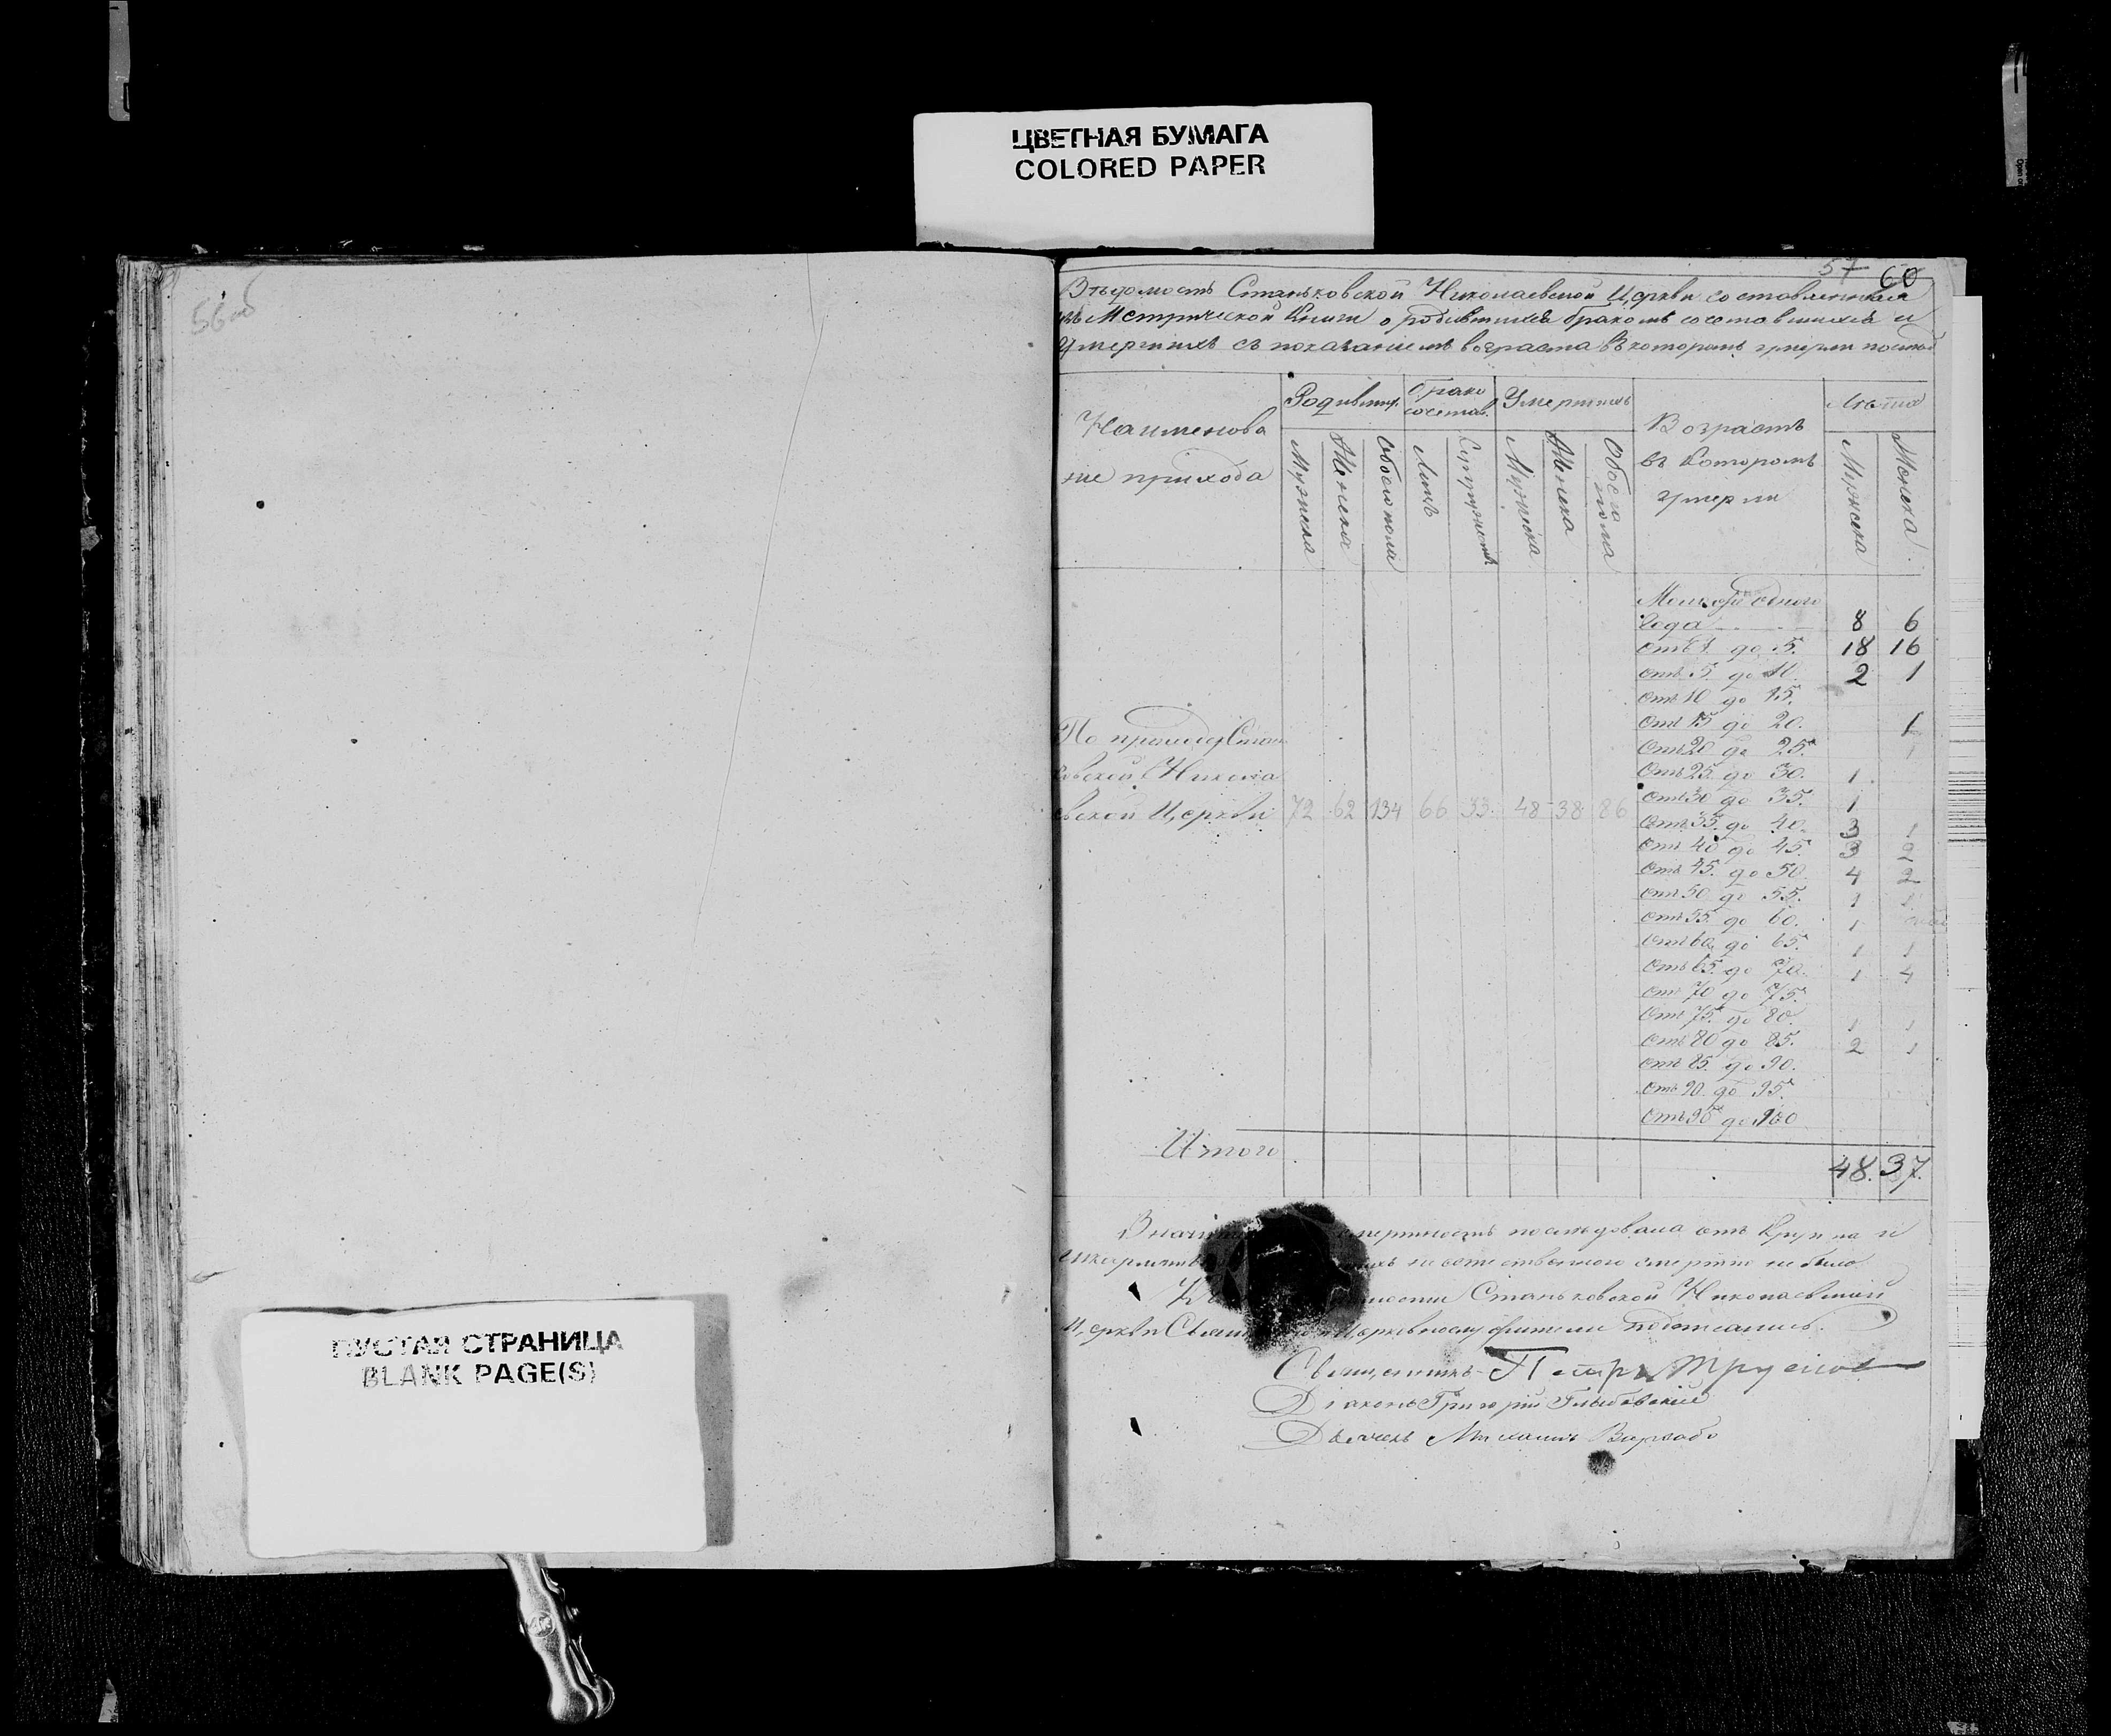 ЦВЕТНАЯ БУМАГА
COLORED PAPER
56об
57 60
Вѣдомость Станьковской Николаевской Церкви составленная
изъ Метрической Книги о родившихся бракомъ сочетавшихся и
Умершихъ съ показаніемъ возраста въ которомъ умерли
Наименова
ніе прихода
Родившихъ
Брако
сочетав.
Умершихъ
Возрастъ
въ Которомъ
умерли
Лѣта
Мужеска
Женска
Обоего пола
Лицъ
Супружествъ
Мужеска
Женска
Обоего
пола
Мужеска
Женска
одного
Года 8 6
Отъ 1 до 5. 18 16
Отъ 5. до 10. 2 1
Отъ 10 до 15.
Отъ 15 до 20. 1
Отъ 20 до 25. 1
Отъ 25. до 30. 1
Отъ 30 до 35. 1
Отъ 35. до 40. 3 1
Отъ 40 до 45. 3 2
Отъ 45. до 50. 4 2
Отъ 50 до 55. 1 1
Отъ 55 до 60. 1
Отъ 60 до 65. 1 1
Отъ 65. до 70. 1 4
Отъ 70 до 75.
Отъ 75. до 80. 1 1
Отъ 80 до 85. 2 1
Отъ 85. до 90.
Отъ 90. до 95.
Отъ 95 до 100
По приходу Стань
ковской Никола
евской Церкви 72 62 134 66 33. 48 38 86
Итого 48. 37.
послѣдовала отъ Крупа и
смертію не было
Станьковской Николаевской
Церкви подписались.
Священникъ Петръ
Діаконъ Григорій
Дьячекъ Михаилъ
ПУСТАЯ СТРАНИЦА
BLANK PAGE(S)